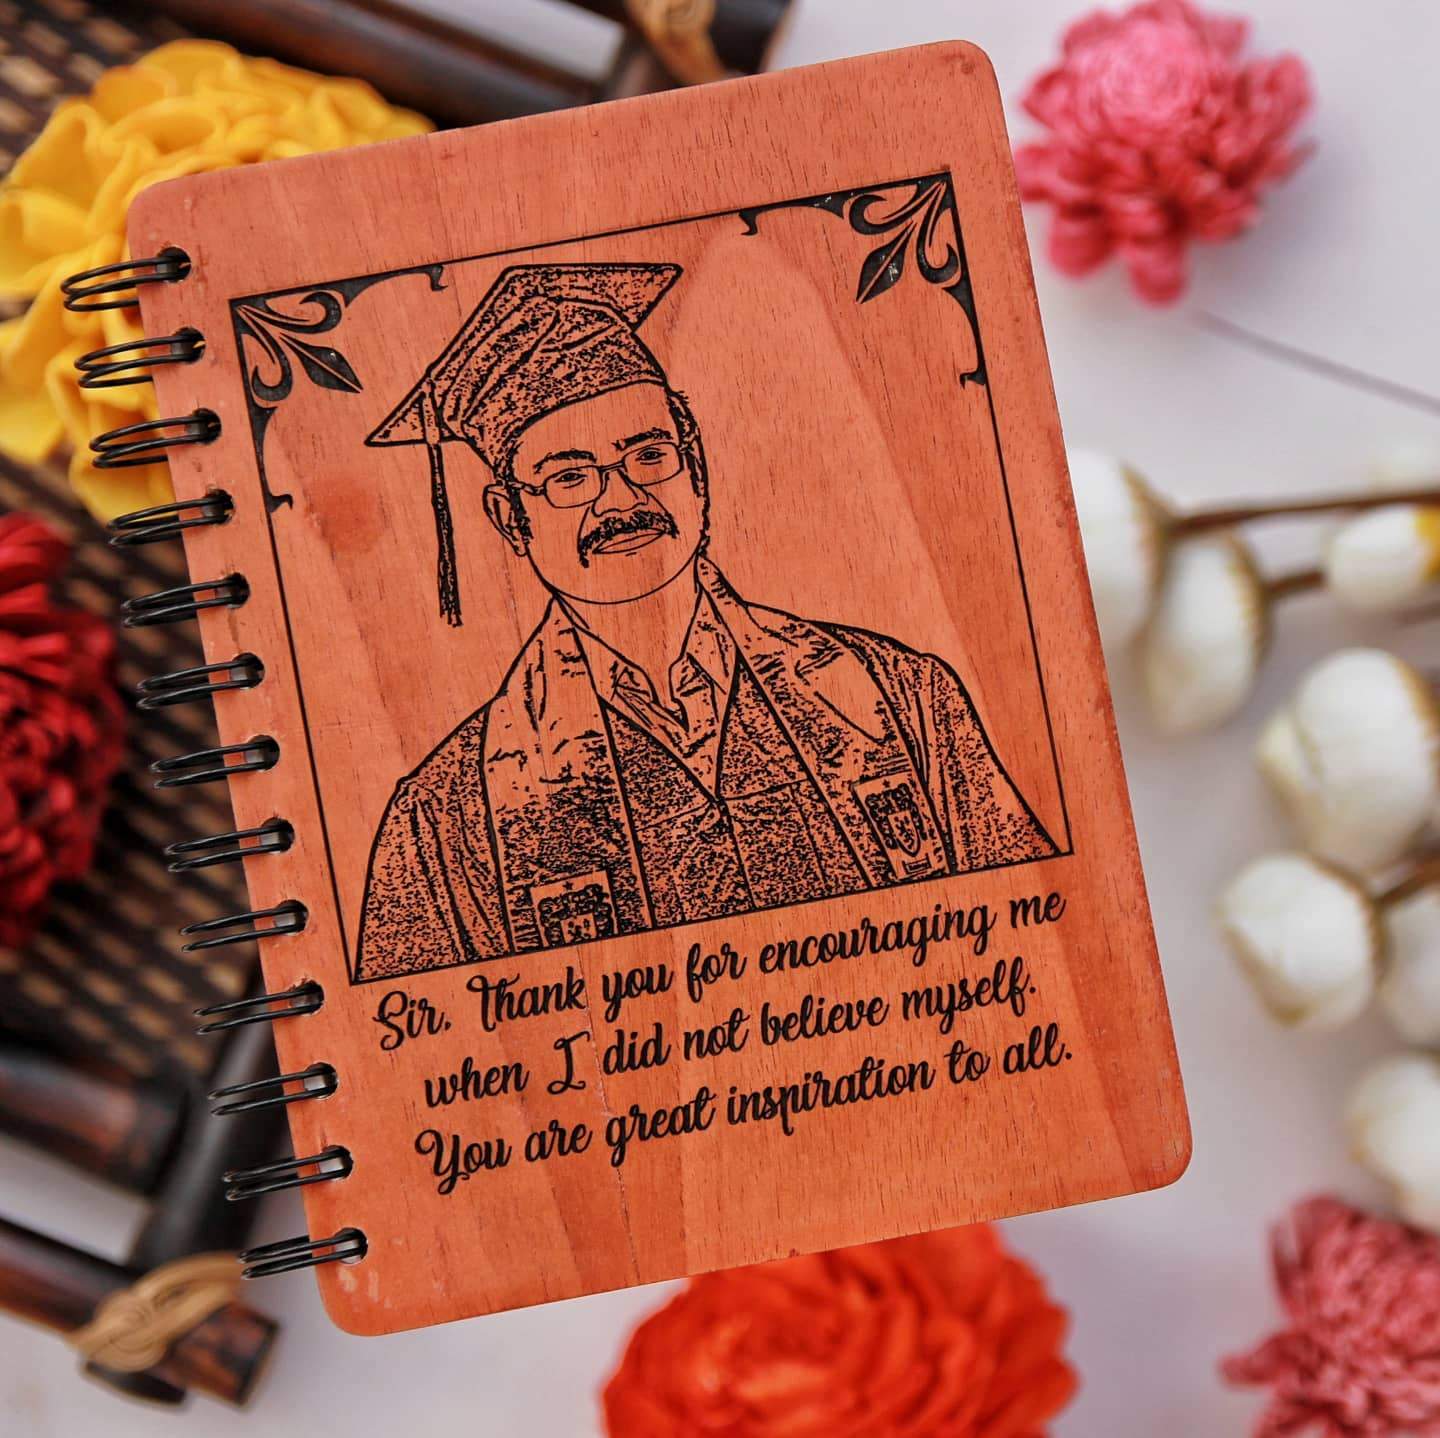 Sir, Thank you for encouraging me
when I did not believe myself.
You are great inspiration to all.